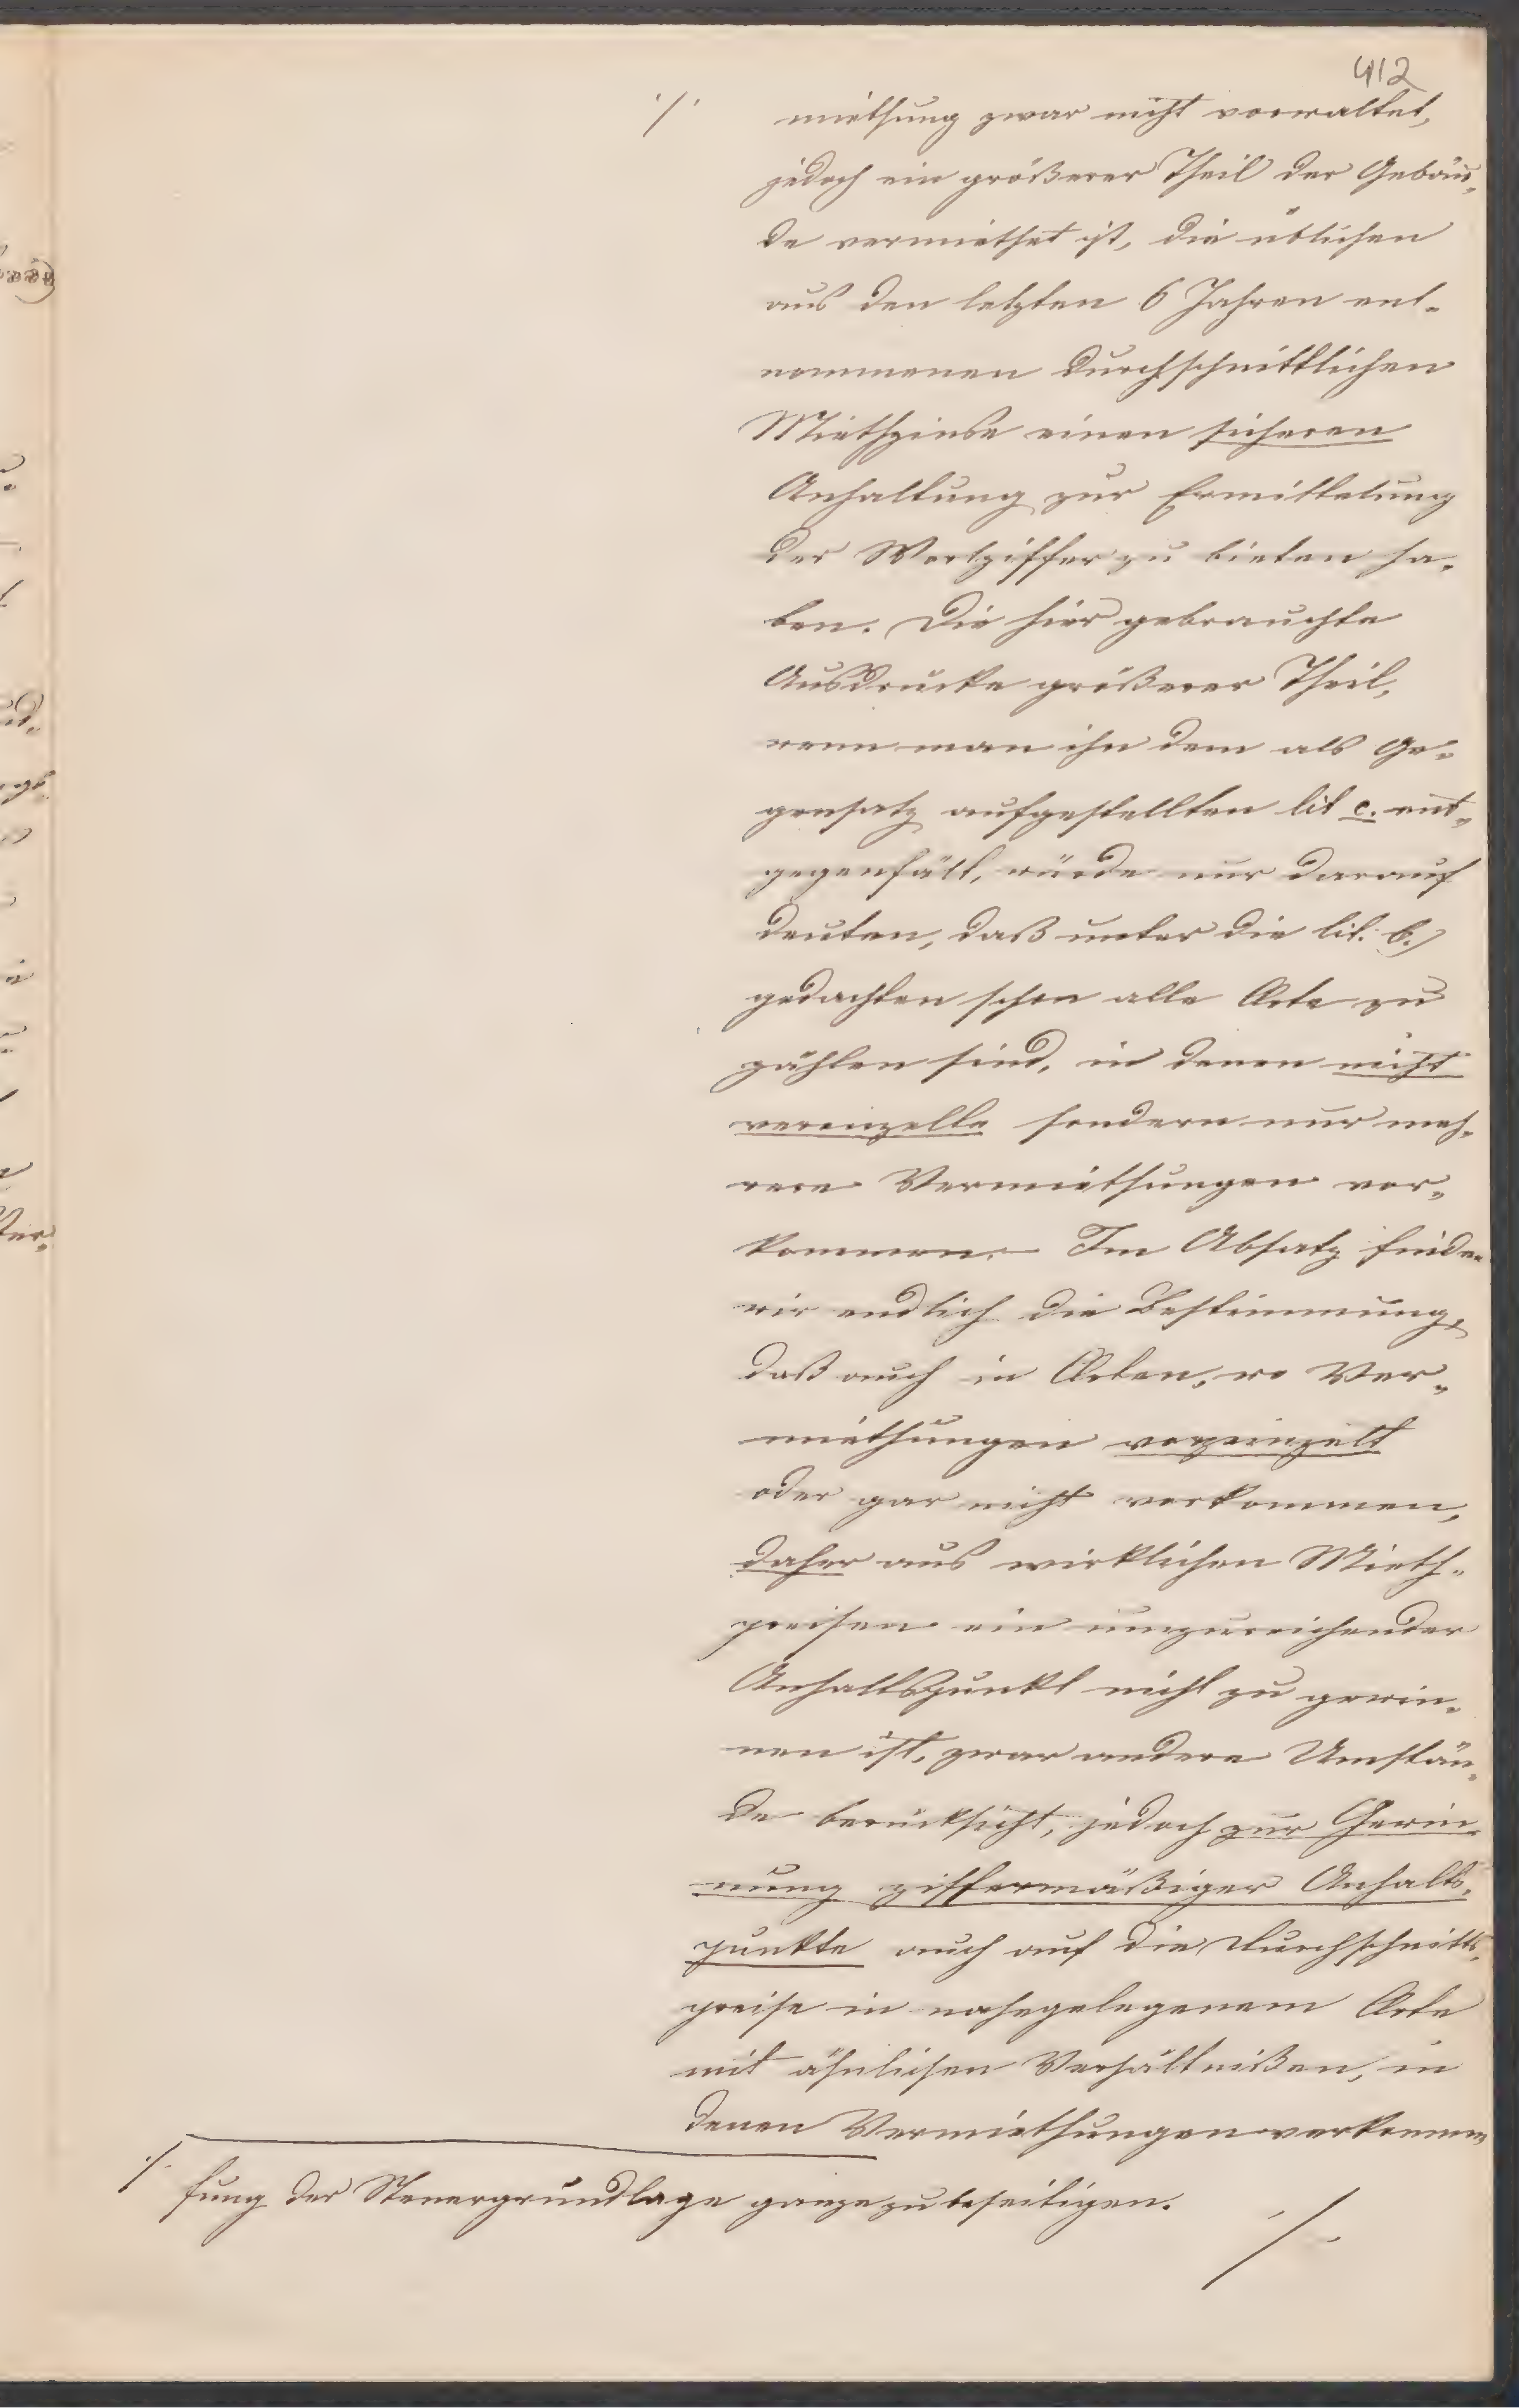 412
./.
miethung zwar nicht vorwaltet,
jedoch ein größerer Theil der Gebäu-
de vermiethet ist, die üblichen
aus den letzten 6 Jahren ent-
nommenen durchschnittlichen
Miethzinse einen sicheren
Anhaltung zur Ermittelung
der Wertziffer zu bieten ha-
ben. Die hier gebrauchte
Ausdrucke größerer Theil,
wenn man ihn dem als Ge-
gensatz aufgestellten lit c. ent-
gegenhält, würde nur darauf
deuten, daß unter die lit. b.)
gedachten schon alle Orte zu
zählen sind, in denen nicht
vereinzelte sondern nur meh-
rere Vermiethungen vor-
kommen. – Im Absatz finden
wir endlich die Bestimmung,
daß auch in Orten, wo Ver-
miethungen vereinzelt
oder gar nicht vorkommen,
daher aus wirklichen Mieth-
preisen ein unzureichender
Anhaltspunkt nicht zu gewin-
nen ist, zwar andere Umstän-
de berücksicht, jedoch zur Gewin-
nung ziffermäßiger Anhalts-
punkte auch auf die Durchschnitts-
preise in nahegelegenem Orte
mit ähnlichen Verhältnißen, in
denen Vermiethungen vorkommen
./. hung der Steuergrundlage ganze zu beseitigen.
./.